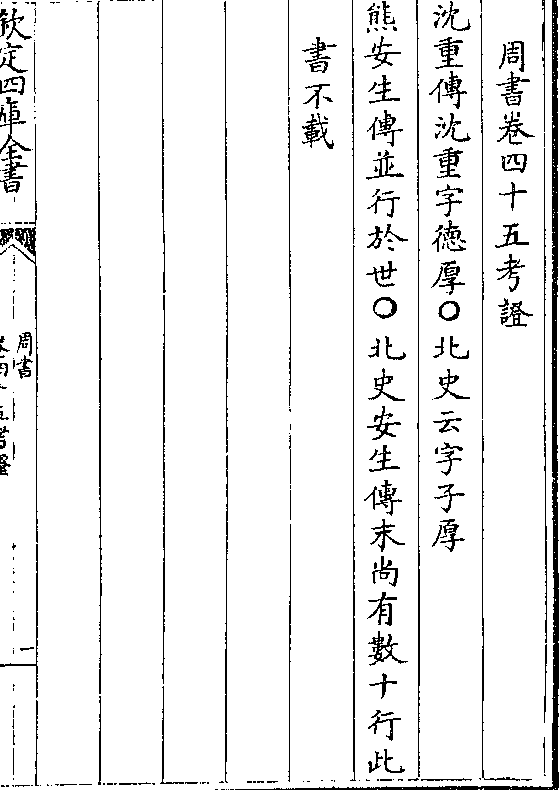 周書卷四十五考證
沈重傳沈重字德厚○北史云字子厚
熊安生傳並行於世○北史安生傳末尚有數十行此
書不載
欽定四庫全書
周書
卷四十五考證
一